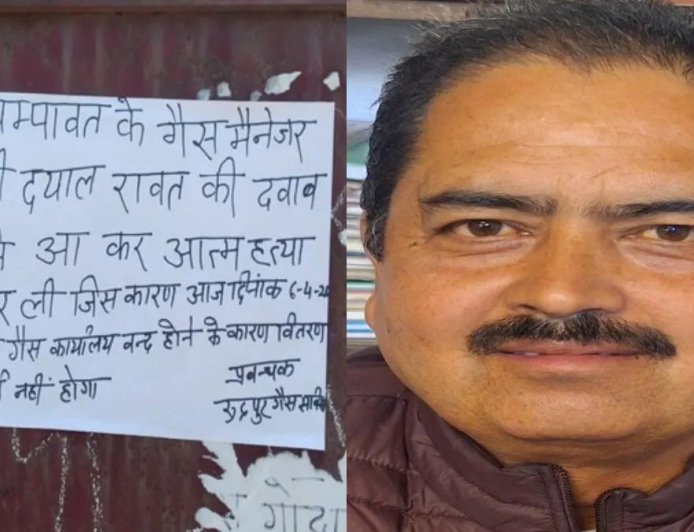 म्पावत के गैस मैनेजर
दयाल रावत की दवाब
आ कर आत्महत्या
ली जिस कारण आज दिनांक 6-4-2
गैस कार्यालय बन्द होने के कारण वितरण
नहीं होगा
प्रबन्धक
रुद्रपुर गैस सर्विस
गोदा